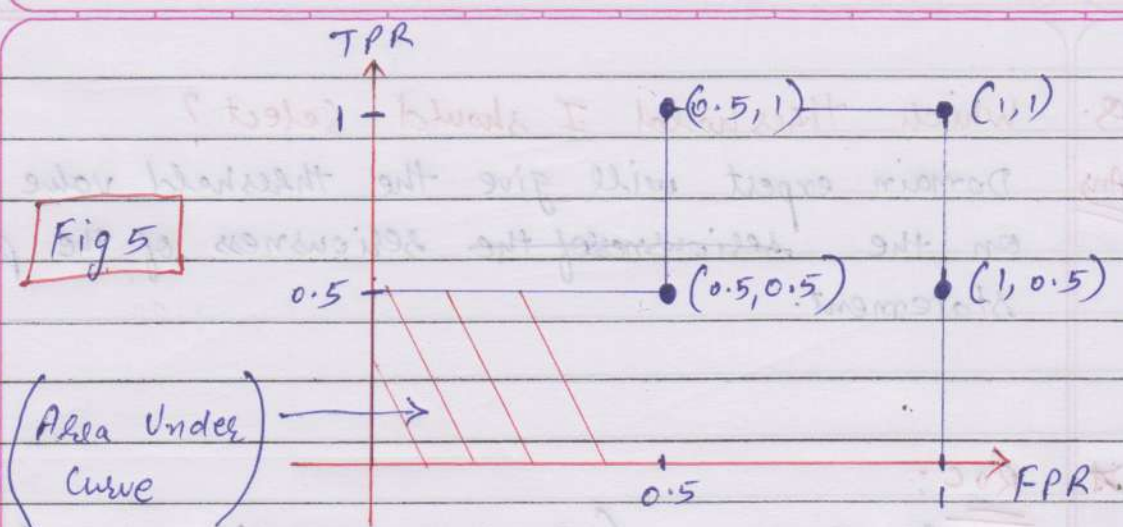 TPR
1
(0.5, 1)
(1, 1)
Fig 5
0.5
(0.5, 0.5)
(1, 0.5)
(Area Under
Curve
0.5
1
FPR.